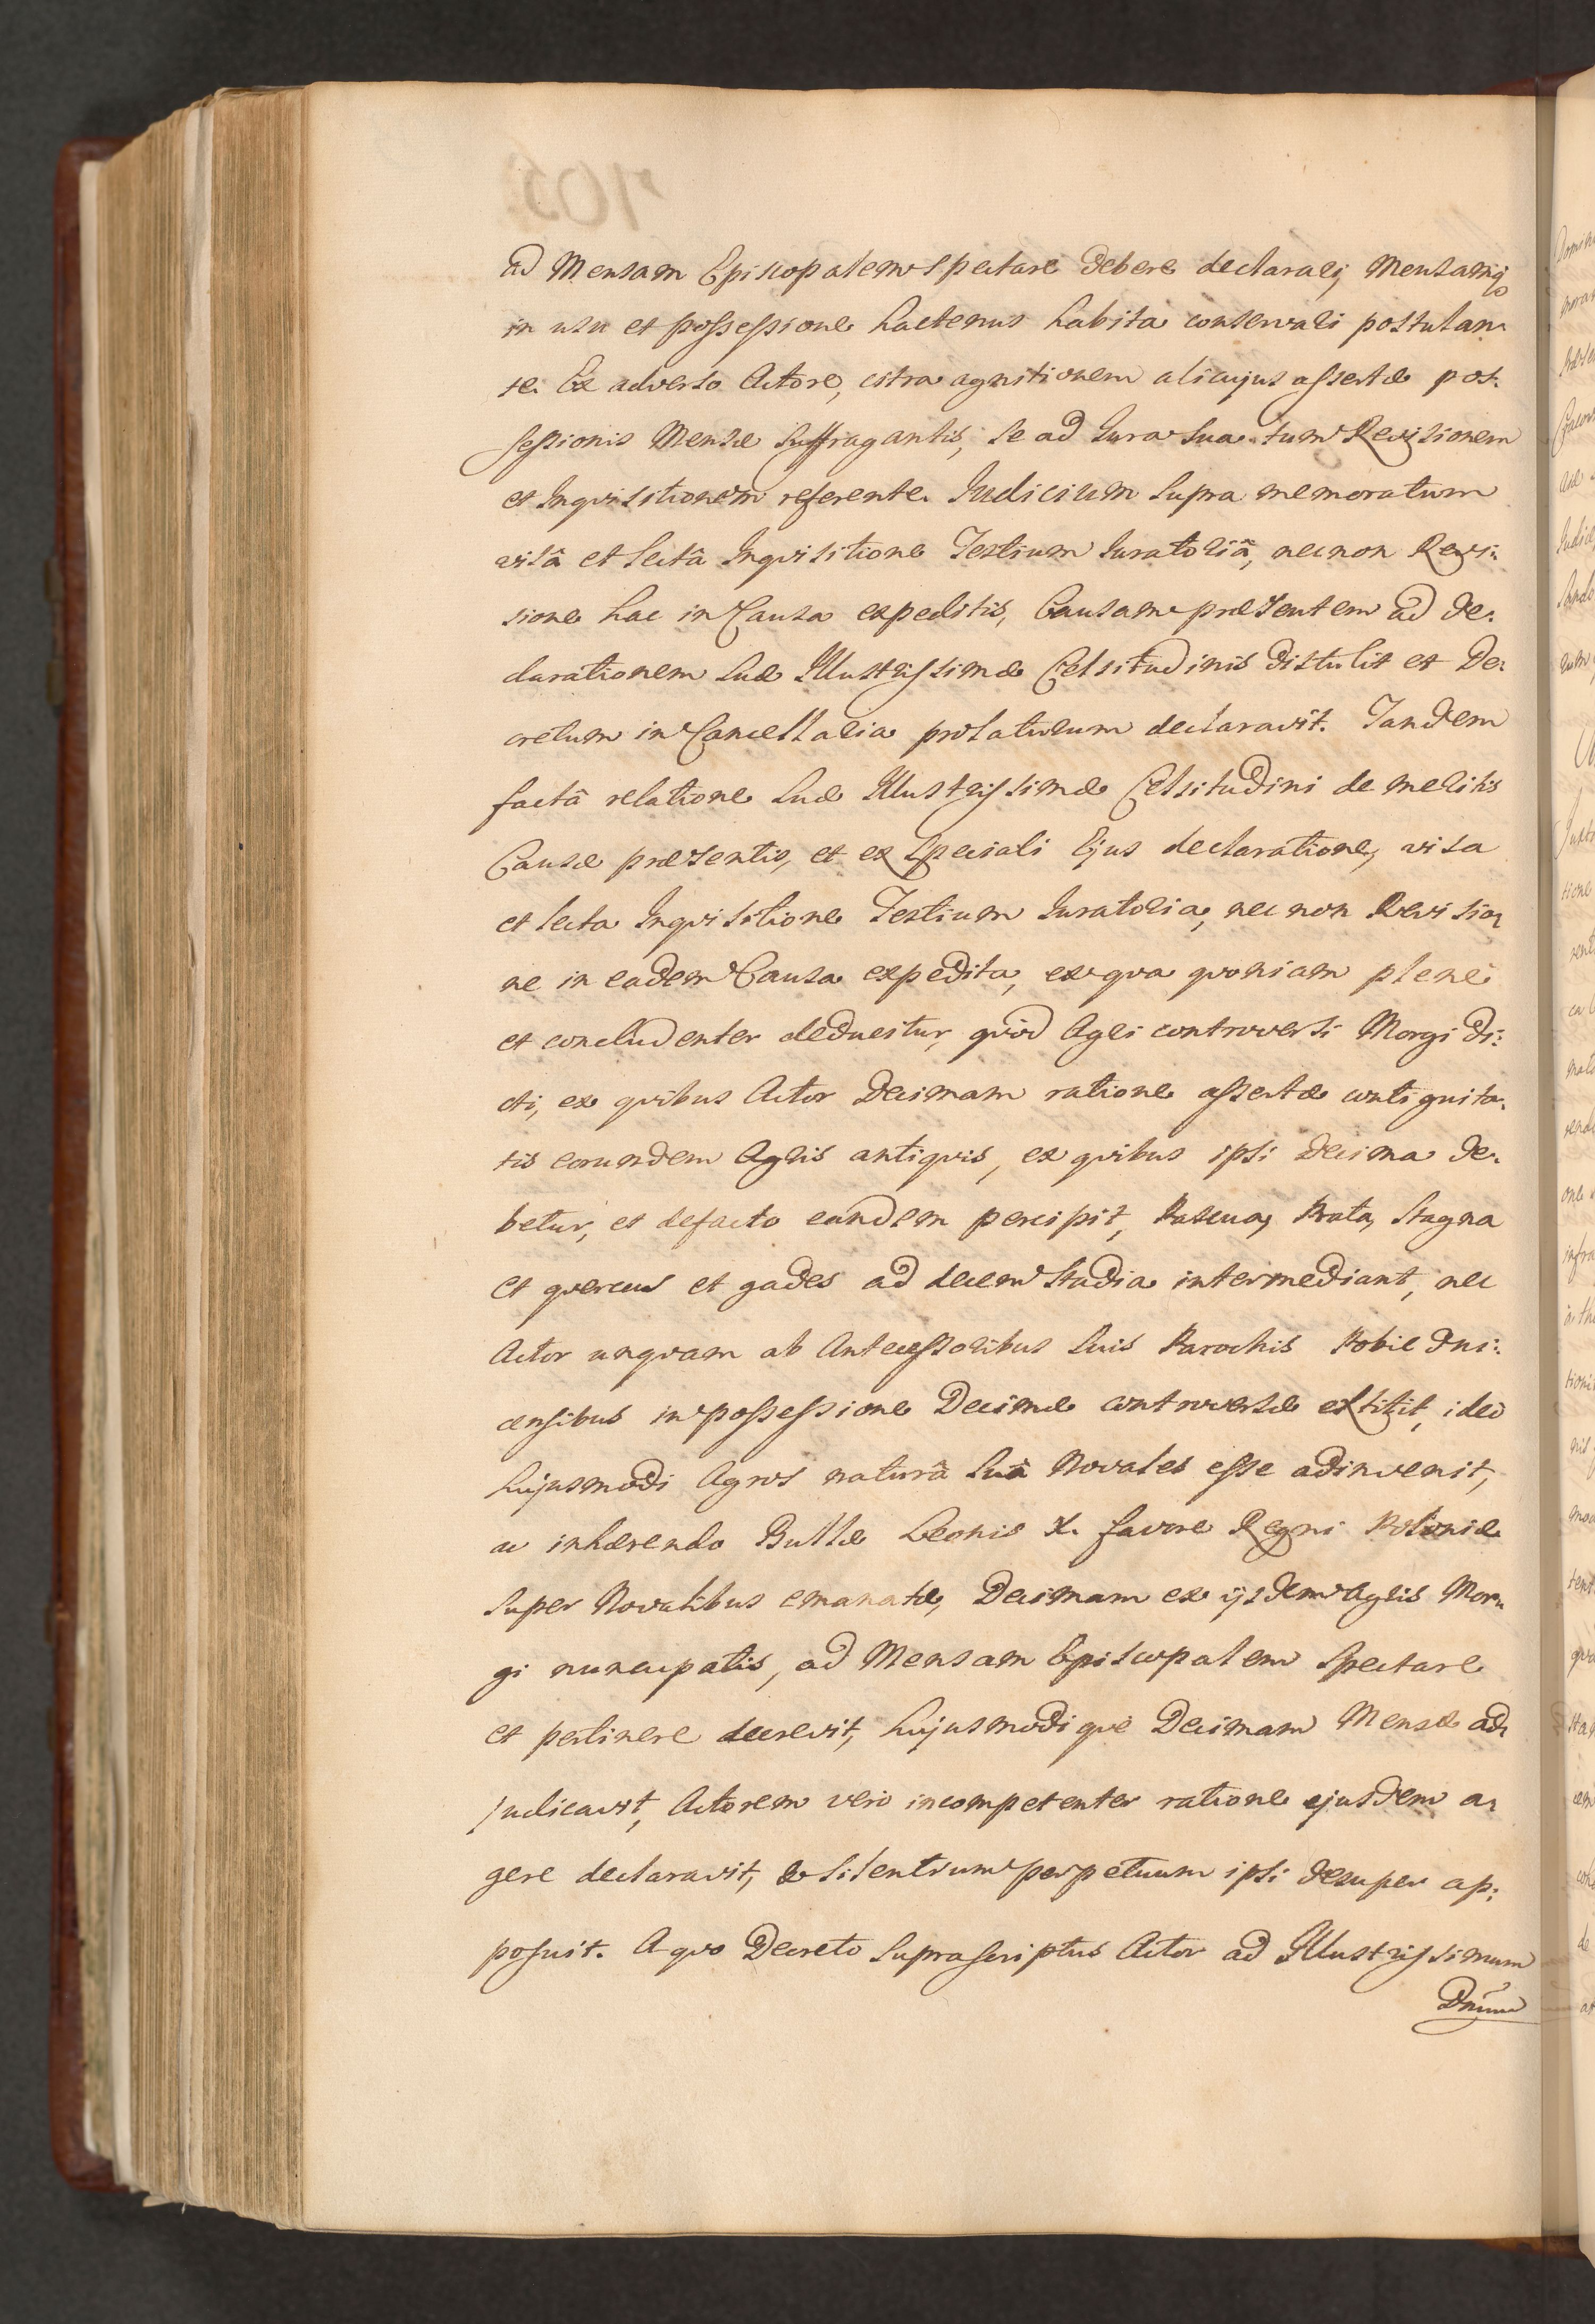 ad Mensam Episcopalem spectare debere declarari, Mensamq3
in usu et possessione hactenus habita conservari postulan-
te. Ex adverso Actore, citra agnitionem alicujus assertæ pos-
sessionis Mensæ suffragantis, se ad Jura sua tum Revisionem
et Inqvisitionem referente. Judicium supra memoratum
visâ et lectâ Inqvisitione Testium Juratoriâ, nec non Revi-
sione hac in Causa expeditis, Causam præsentem ad de-
clarationem Suæ Illustrissimæ Celsitudinis distulit et De-
cretum in Cancellaria prolaturum declaravit. Tandem
factâ relatione Suæ Illustrissimæ Celsitudini de meritis
Causæ præsentis, et ex speciali Ejus declaratione, visa
et lecta Inqvisitione Testium Juratoria, nec non Revisio-
ne in eadem Causa expedita, ex qva qvoniam plenè
et concludenter deducitur, qvòd Agri controversi Morgi di-
cti, ex qvibus Actor Decimam ratione assertæ contiguita-
tis eorumdem Agris antiqvis, ex qvibus ipsi Decima de-
betur, et defacto eandem percipit, Pascua, Prata, Stagna
et qvercus et gades ad decem Stadia intermediant, nec
Actor unqvam ab Antecessoribus suis Parochis Pobiedni-
censibus in possessione Decimæ controversæ extitit, ideò
hujusmodi Agros naturâ suâ Novales esse adinvenit,
ac inhærendo Bullæ Leonis X. favore Regni Poloniæ
super Novalibus emanatæ, Decimam ex ijsdem Agris Mor-
gi nuncupatis, ad Mensam Episcopalem spectare
et pertinere decrevit, hujusmodi qve Decimam Mensæ ad-
judicavit, Actorem verò incompetenter ratione ejusdem a-
gere declaravit, & silentium perpetuum ipsi desuper ap-
posuit. A qvo Decreto suprascriptus Actor ad Illustrissimum
Dnum